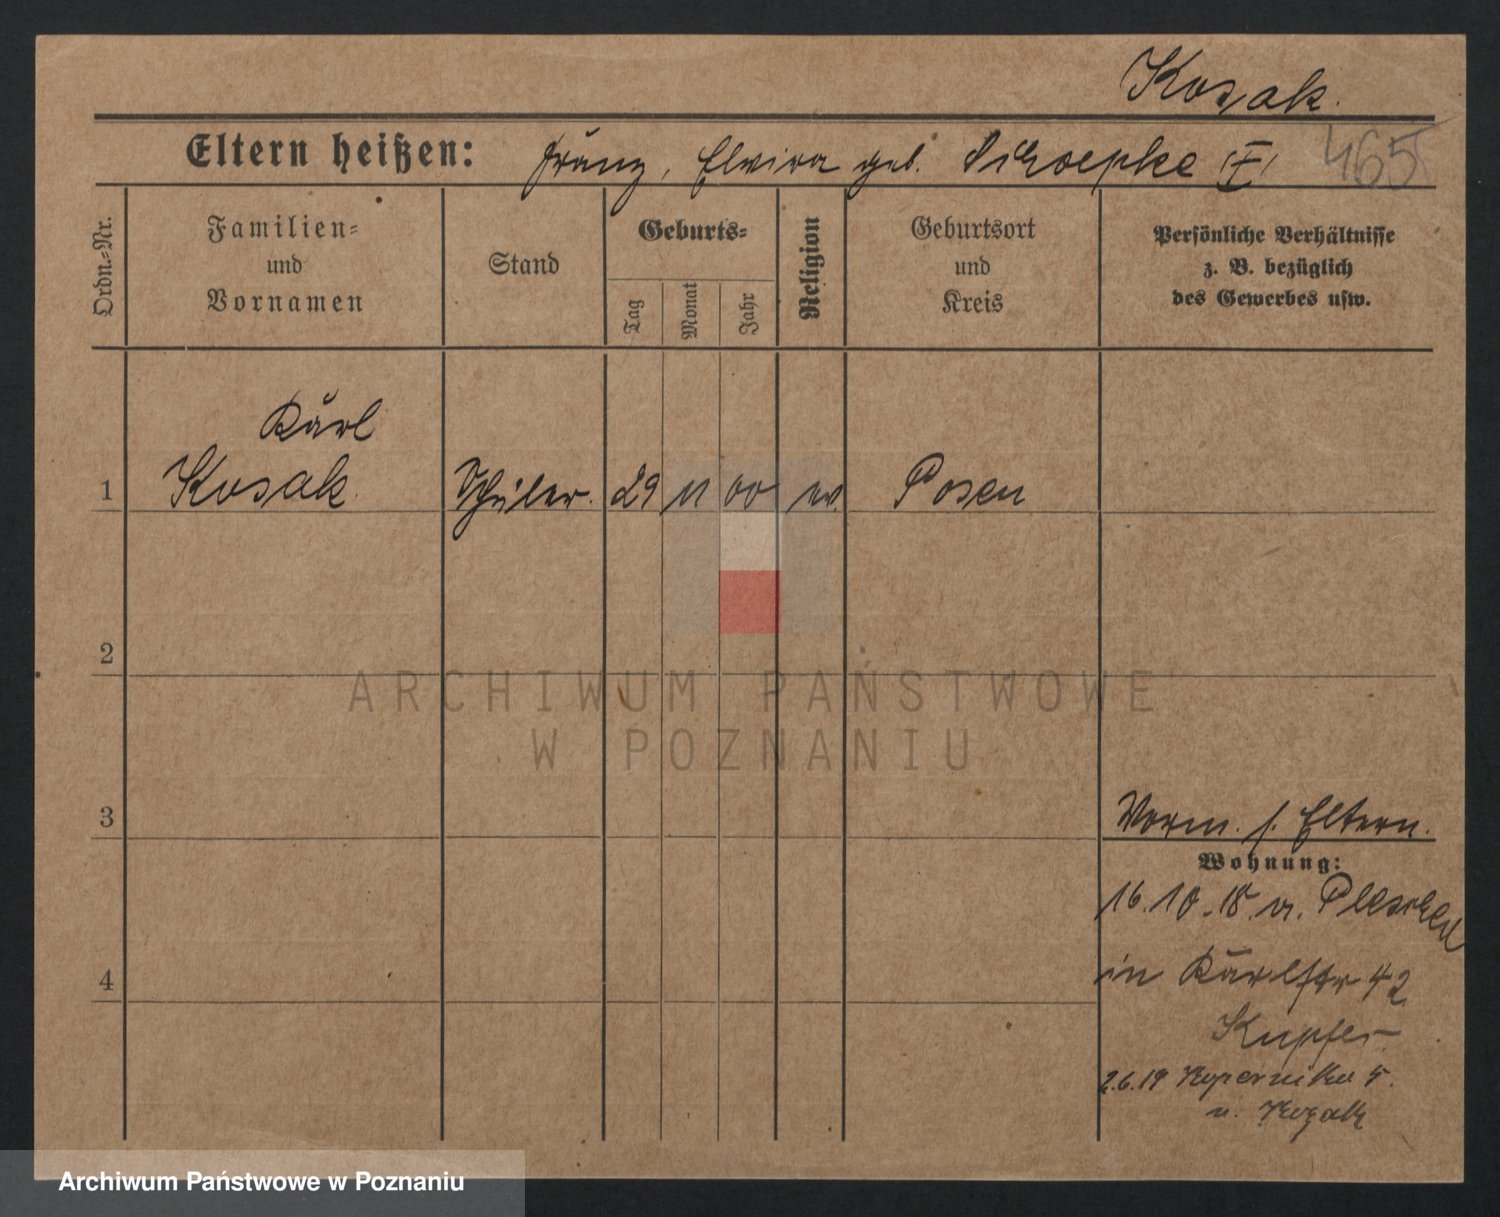 Kosak.
Eltern heißen: Franz, Elvira geb. Schoepke (F) 465
Ordn.=Nr.
Familien=
und
Vornamen
Stand
Geburts=
Tag
Monat
Jahr
Religion
Geburtsort
und
Kreis
Persönliche Verhältnisse
z. B. bezüglich
des Gewerbes usw.
Karl
1 Kosak. Schüler. 29 11 00 ev. Posen
2
ARCHIWUM PAŃSTWOWE
W POZNANIU
3
Vorm. s. Eltern.
Wohnung:
16.10.18 v. Pleschen
4
in Karlstr 42
Kupfer.
2.6.19 Kopernika 5.
u. Kozak
Archiwum Państwowe w Poznaniu